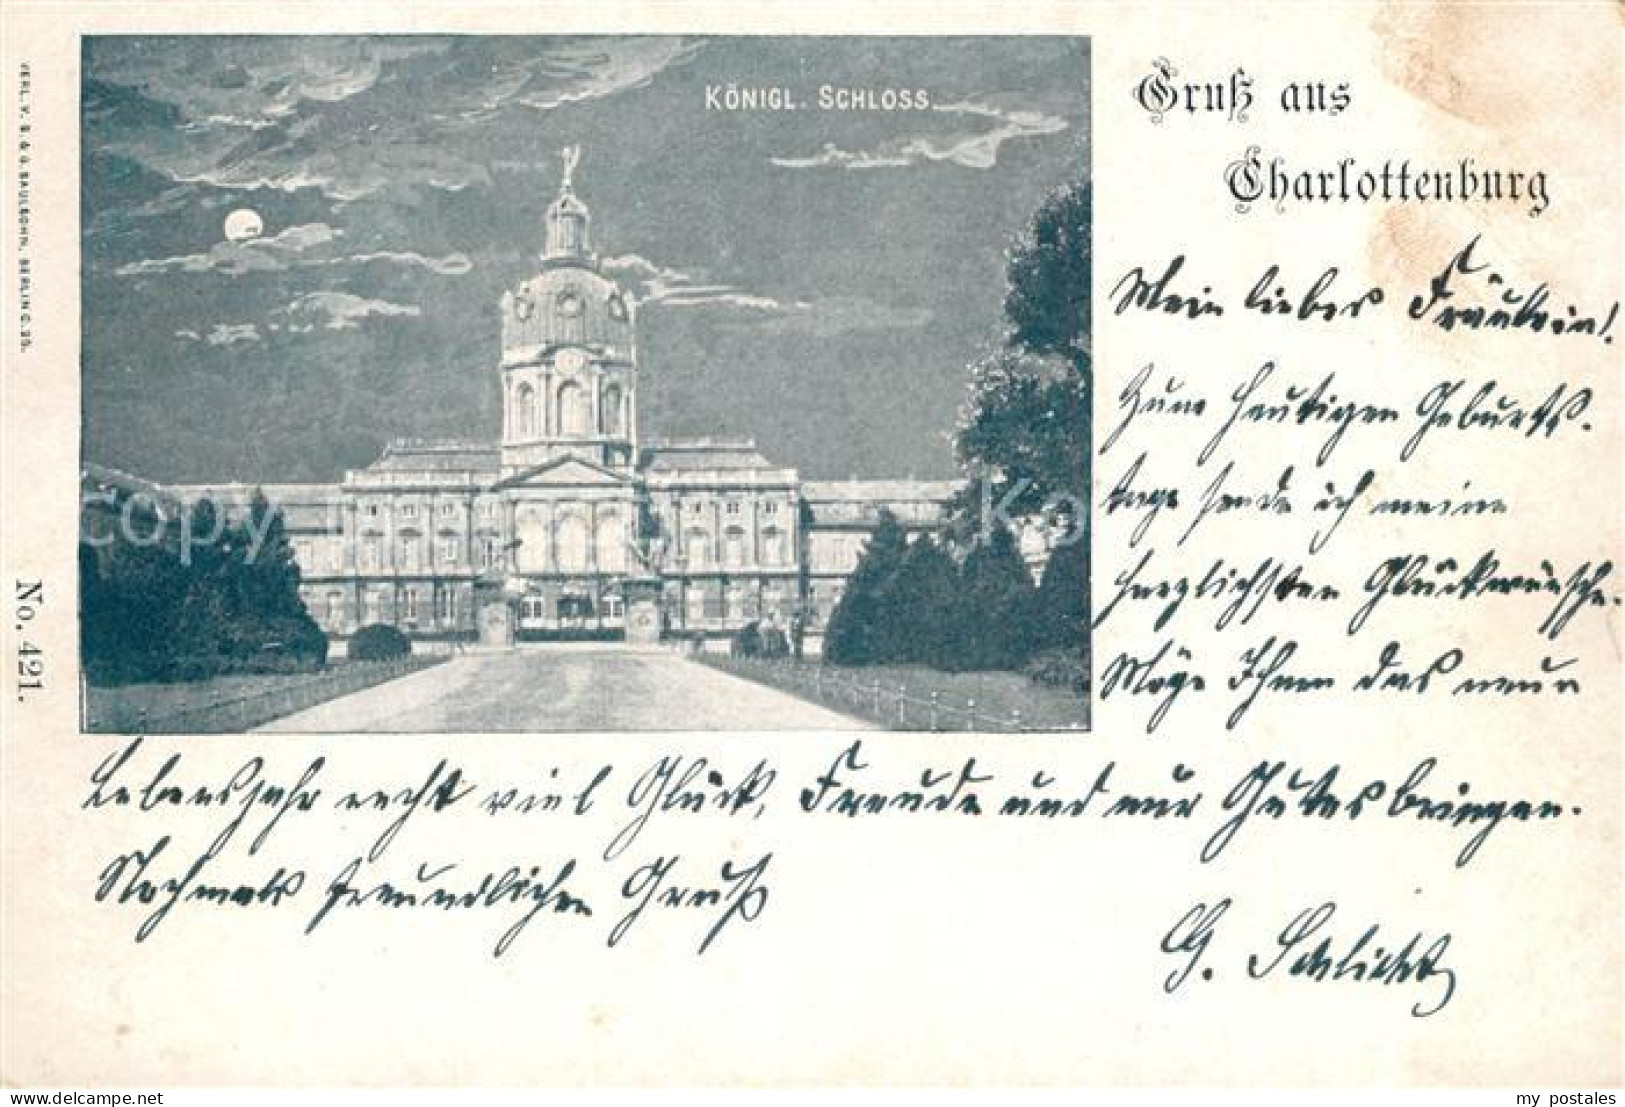 VERL. V. S. & G. SAULSOHN, BERLIN C. 25.
No. 421.
KÖNIGL. SCHLOSS.
Gruß aus
Charlottenburg
Mein liebes Fräulein!
Zum heutigen Geburts-
tage sende ich meine
herzlichsten Glückwünsche.
Möge Ihnen das neue
Lebensjahr recht viel Glück, Freude und nur Gutes bringen.
Nochmals freundlichen Gruß
G. Schlicht
copyright
delcampe.net
my_postales